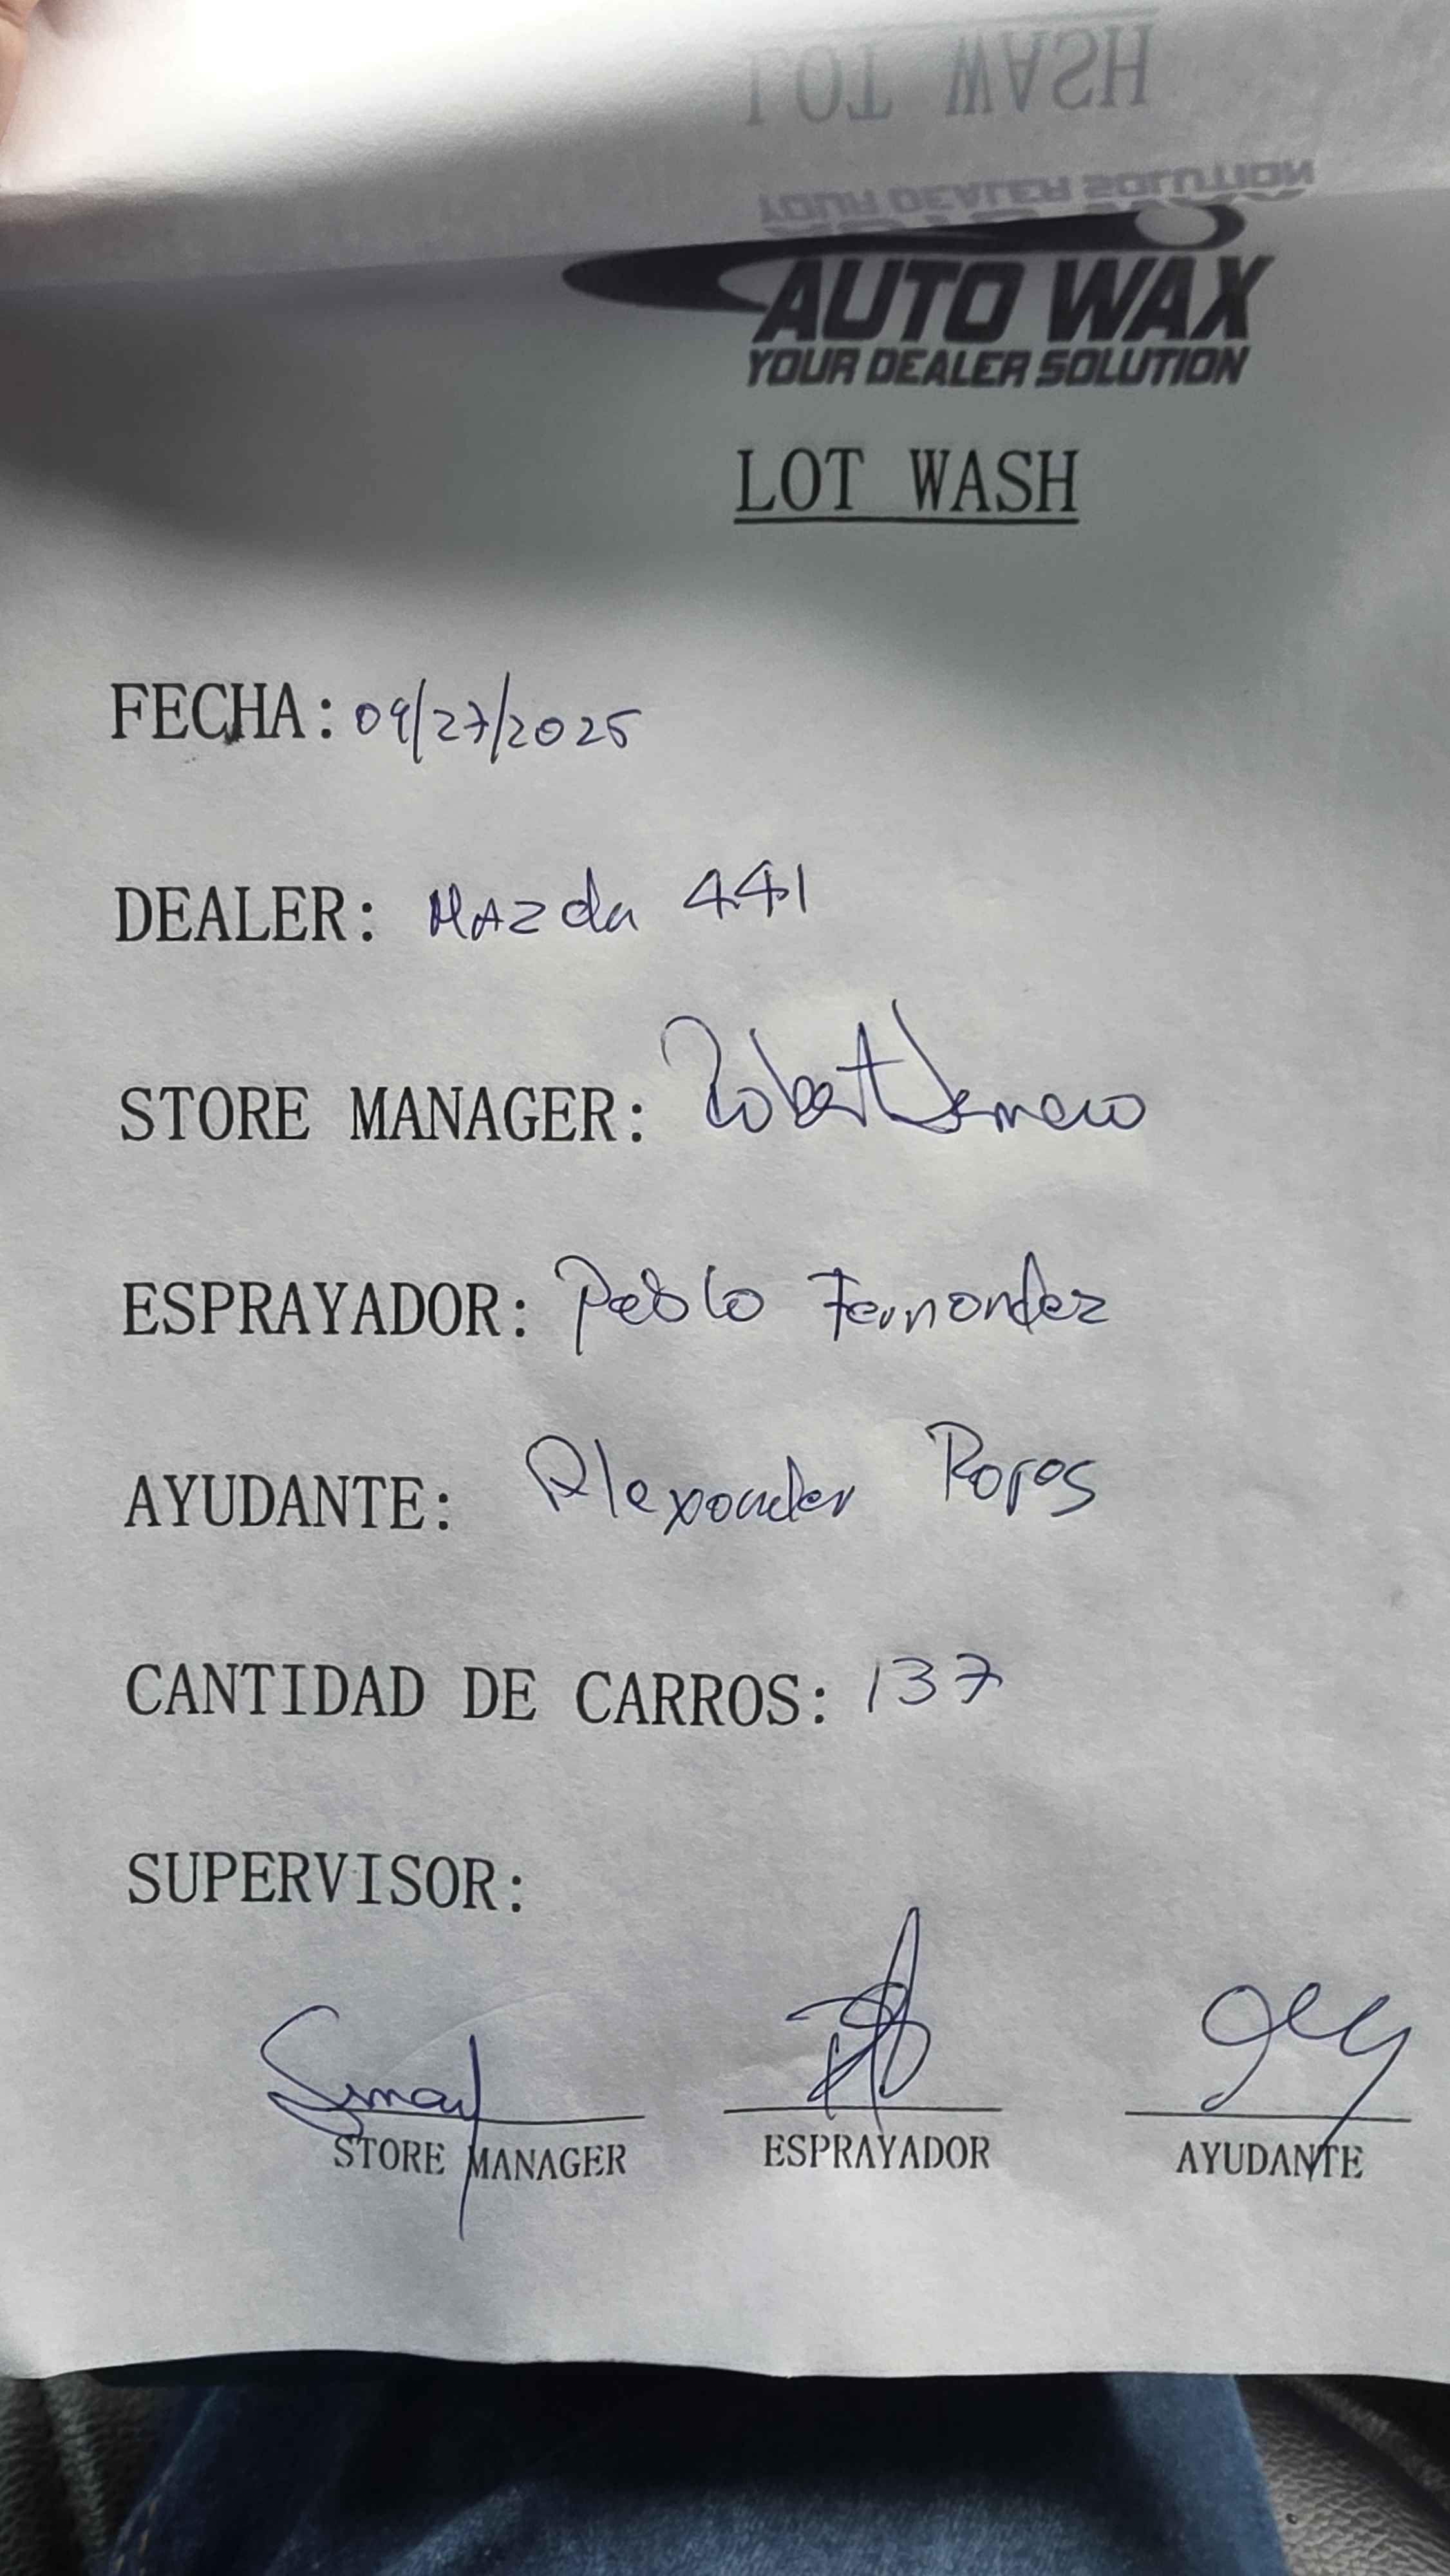 LOT WASH
YOUR DEALER SOLUTION
AUTO WAX
YOUR DEALER SOLUTION
LOT WASH
FECHA: 09/27/2025
DEALER: Mazda 441
STORE MANAGER: Robert
ESPRAYADOR: Pablo Fernandez
AYUDANTE: Alexander Rojas
CANTIDAD DE CARROS: 137
SUPERVISOR:
STORE MANAGER ESPRAYADOR AYUDANTE